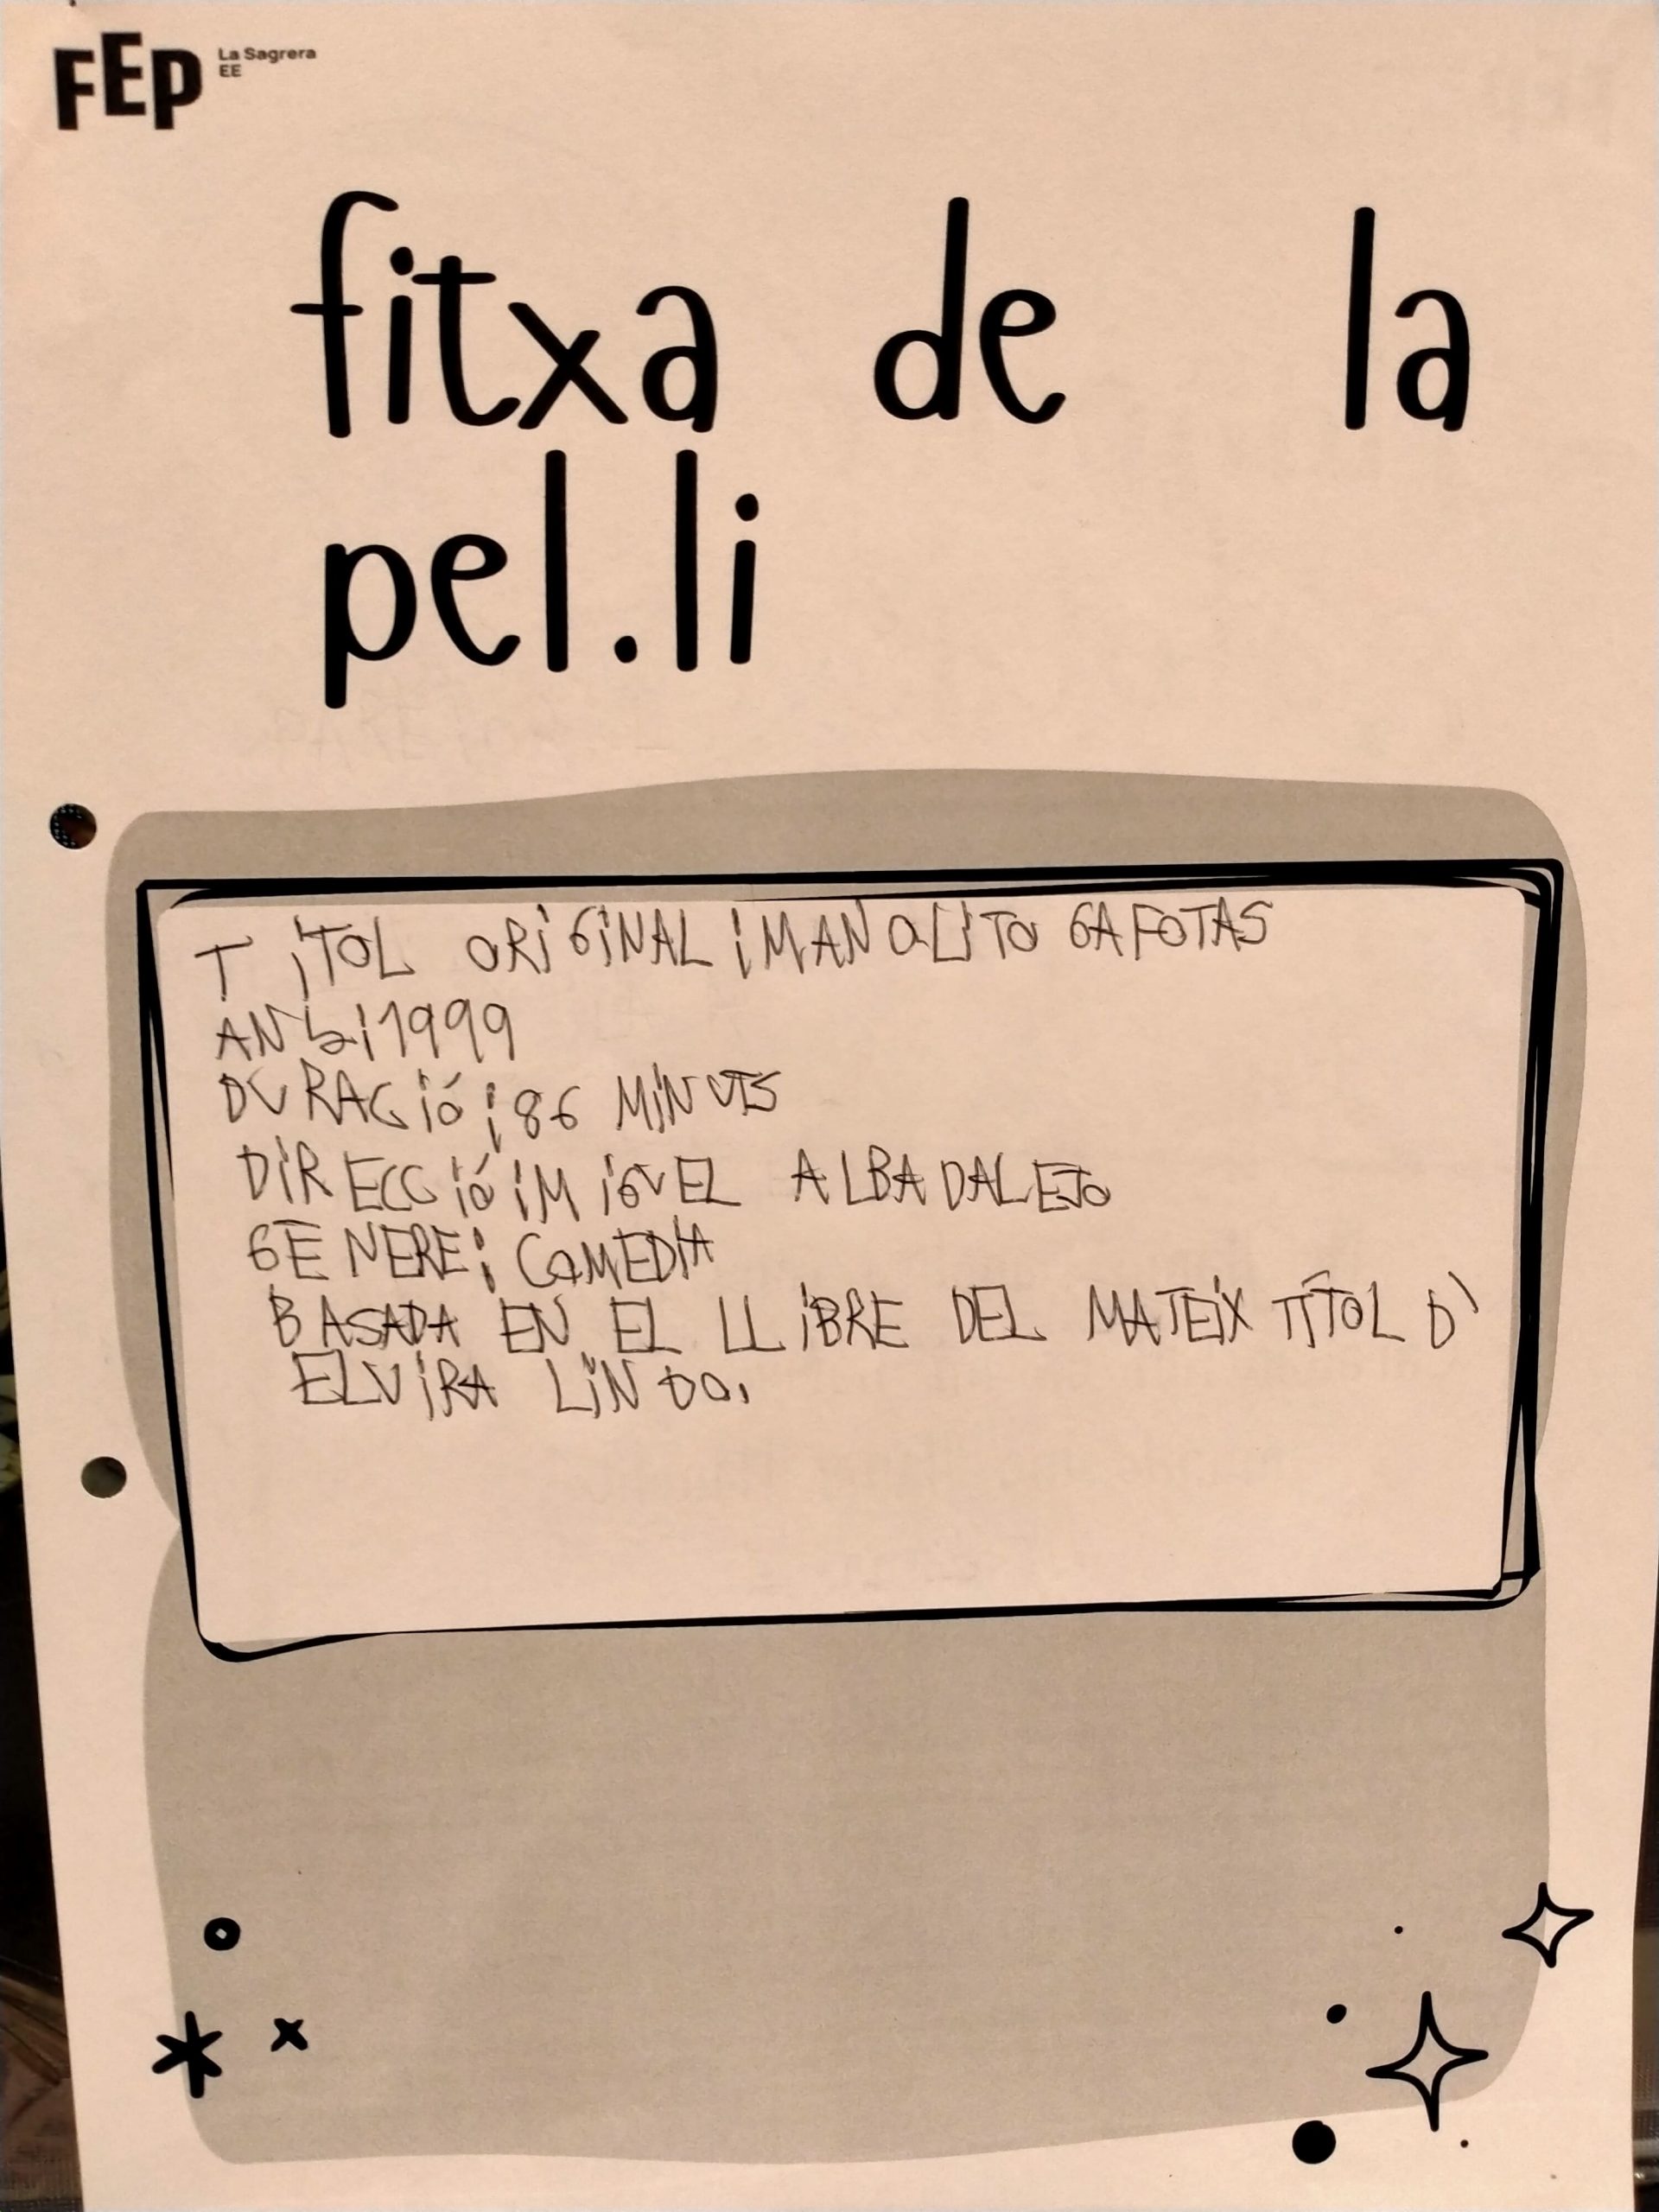 FEP La Sagrera
EE
fitxa de la
pel.li
TiTOL ORiGiNAL: MANOLiTO GAFOTAS
ANY: 1999
DURACió: 86 MiNUTS
DiRECCió: MiGUEL ALBADALEJO
GENERE: COMEDiA
BASADA EN EL LLiBRE DEL MATEiX TíTOL D'
ELViRA LiNDO.